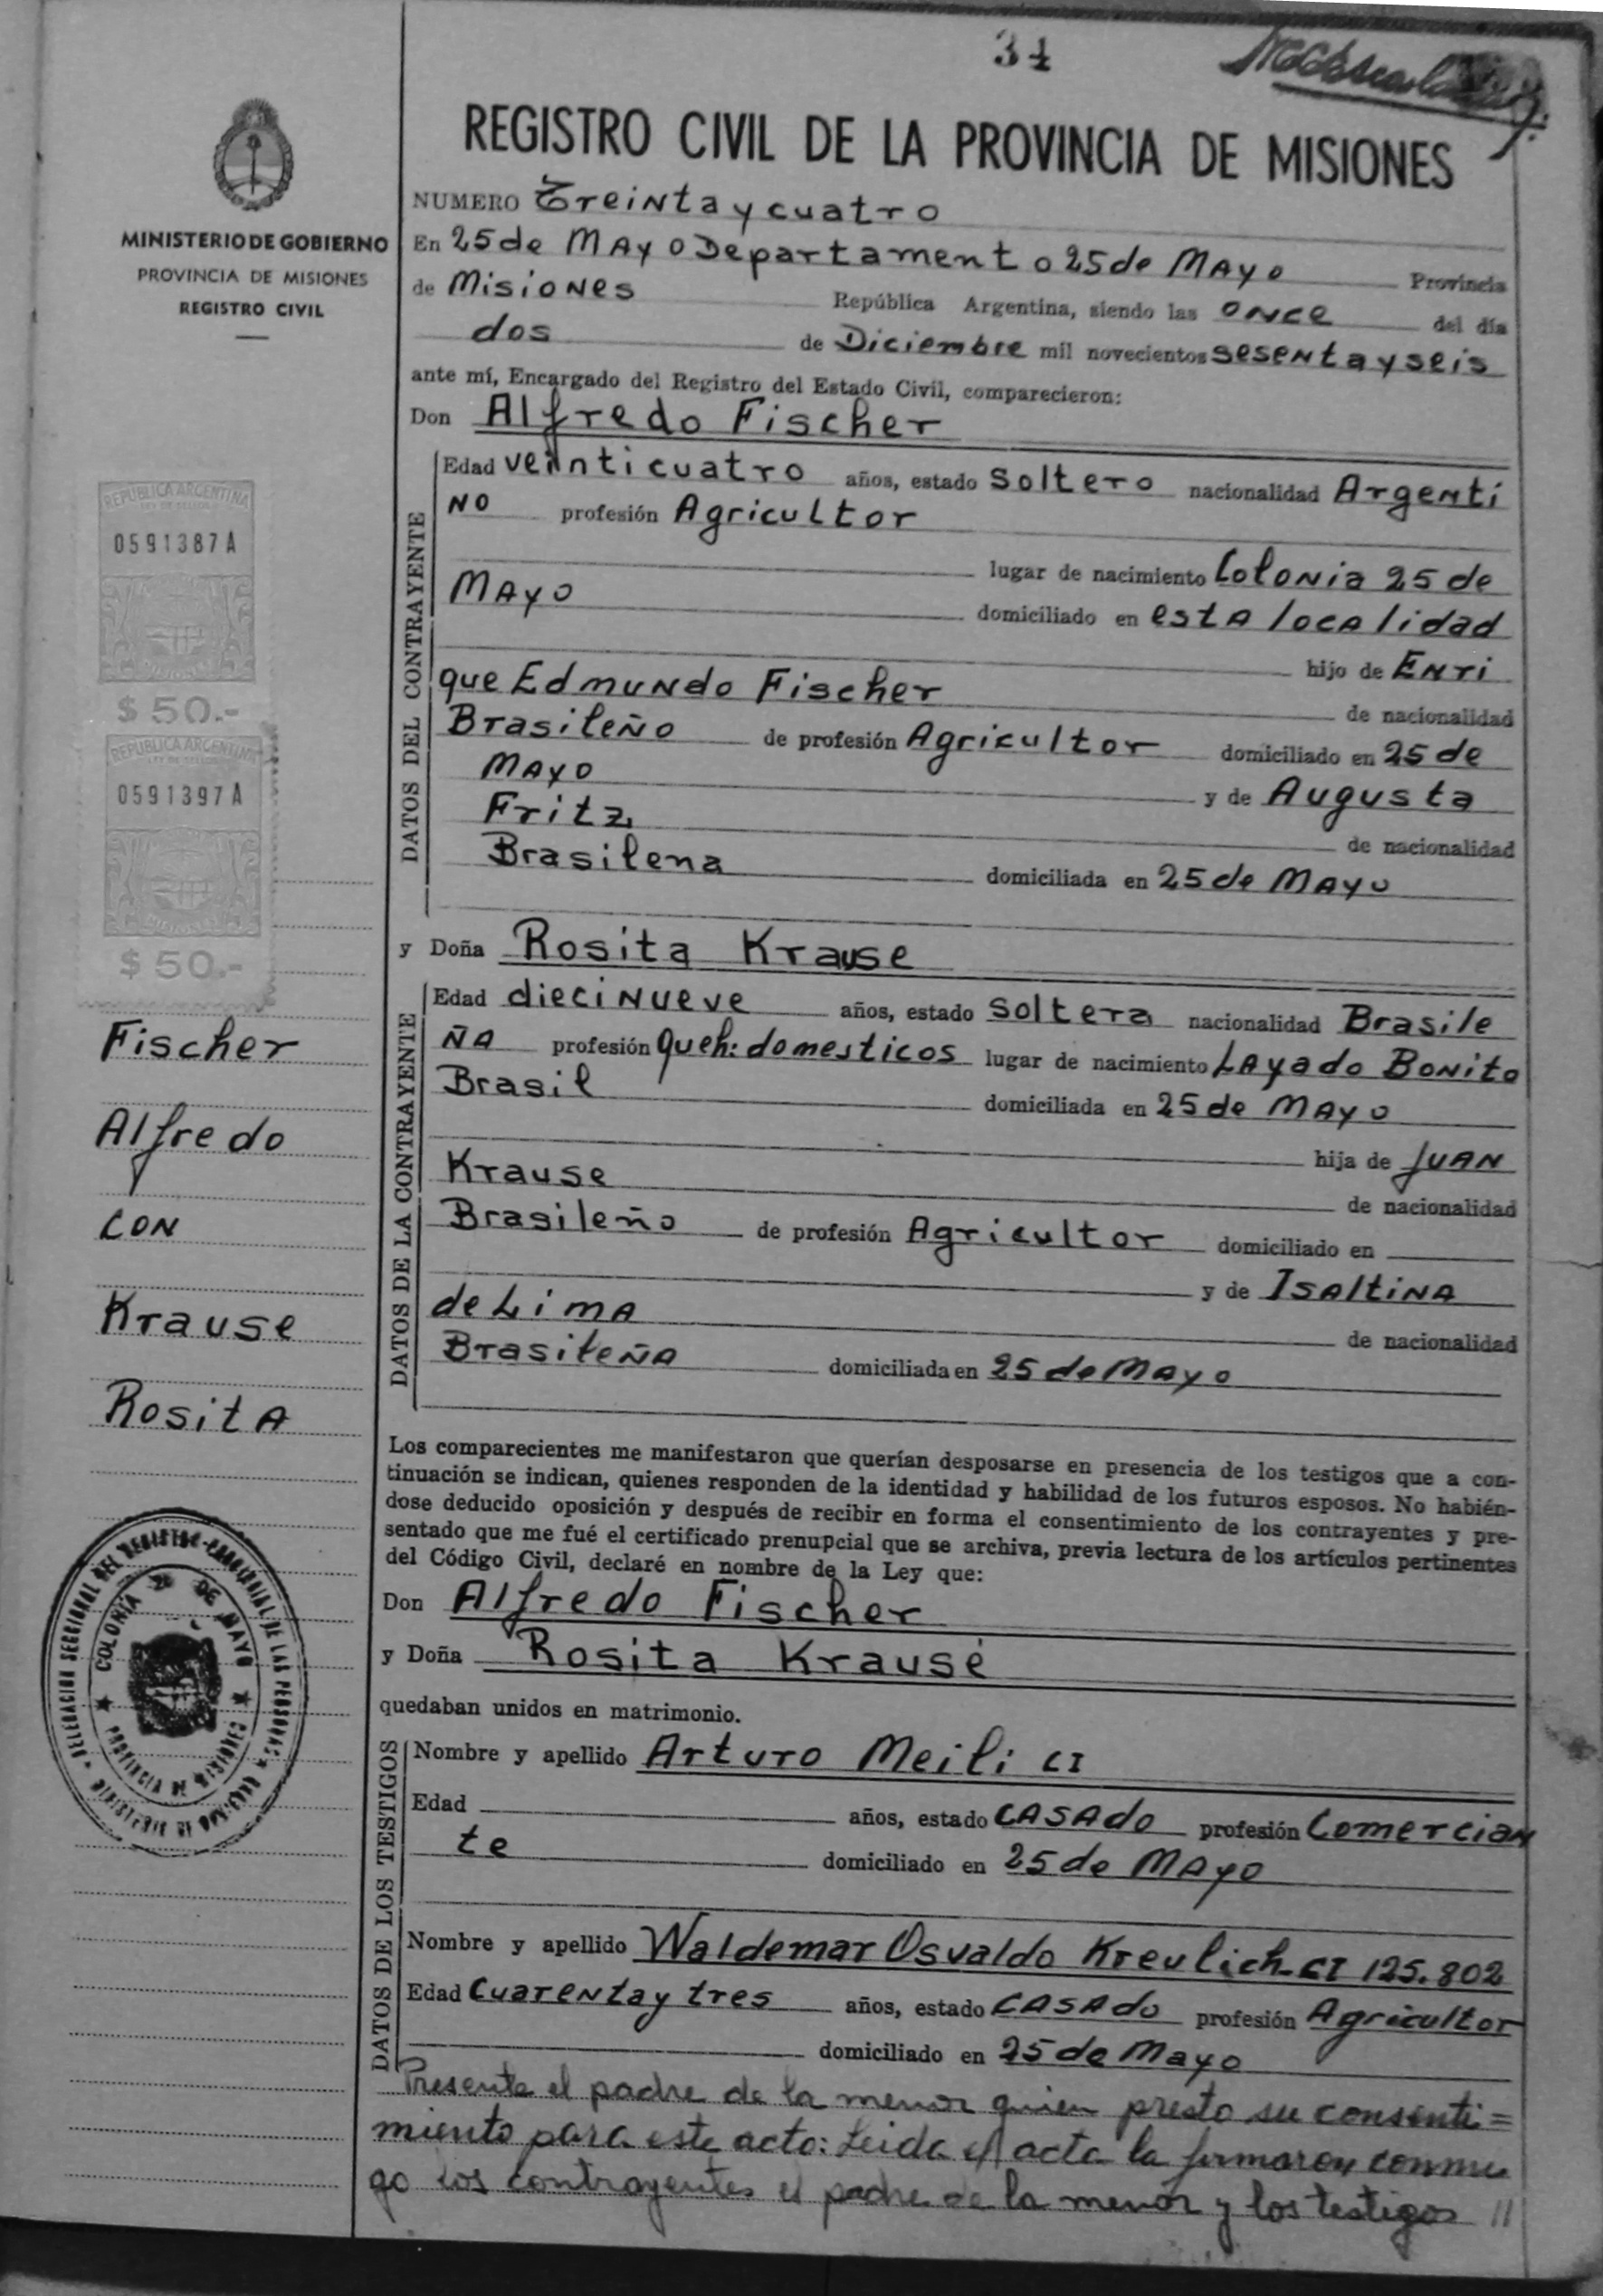 34
REGISTRO CIVIL DE LA PROVINCIA DE MISIONES
MINISTERIO DE GOBIERNO
PROVINCIA DE MISIONES
REGISTRO CIVIL
REPUBLICA ARGENTINA
0591387A
MISIONES
$ 50.-
REPUBLICA ARGENTINA
0591397A
MISIONES
$ 50.-
Fischer
Alfredo
con
Krause
Rosita
COLONIA 25 DE MAYO
PROVINCIA DE MISIONES
NUMERO Treinta y cuatro
En 25 de Mayo Departamento 25 de Mayo Provincia
de Misiones República Argentina, siendo las once del día
dos de Diciembre mil novecientos sesenta y seis
ante mí, Encargado del Registro del Estado Civil, comparecieron:
Don Alfredo Fischer
DATOS DEL CONTRAYENTE
Edad veinticuatro años, estado Soltero nacionalidad Argenti
no profesión Agricultor
lugar de nacimiento Colonia 25 de
Mayo domiciliado en esta localidad
hijo de Enri
que Edmundo Fischer de nacionalidad
Brasileño de profesión Agricultor domiciliado en 25 de
Mayo y de Augusta
Fritz de nacionalidad
Brasilena domiciliada en 25 de Mayo
y Doña Rosita Krause
DATOS DE LA CONTRAYENTE
Edad diecinueve años, estado Soltera nacionalidad Brasile
ña profesión Queh: domesticos lugar de nacimiento Layado Bonito
Brasil domiciliada en 25 de Mayo
hija de Juan
Krause de nacionalidad
Brasileño de profesión Agricultor domiciliado en
y de Isaltina
de Lima de nacionalidad
Brasileña domiciliada en 25 de Mayo
Los comparecientes me manifestaron que querían desposarse en presencia de los testigos que a con-
tinuación se indican, quienes responden de la identidad y habilidad de los futuros esposos. No habién-
dose deducido oposición y después de recibir en forma el consentimiento de los contrayentes y pre-
sentado que me fué el certificado prenupcial que se archiva, previa lectura de los artículos pertinentes
del Código Civil, declaré en nombre de la Ley que:
Don Alfredo Fischer
y Doña Rosita Krause
quedaban unidos en matrimonio.
DATOS DE LOS TESTIGOS
Nombre y apellido Arturo Meili CI
Edad años, estado casado profesión Comercian
te domiciliado en 25 de Mayo
Nombre y apellido Waldemar Osvaldo Kreulich-CI 125.802
Edad Cuarenta y tres años, estado casado profesión Agricultor
domiciliado en 25 de Mayo
Presente el padre de la menor quien presto su consenti=
miento para este acto: Leida el acta la firmaron conmi
go los contrayentes el padre de la menor y los testigos //